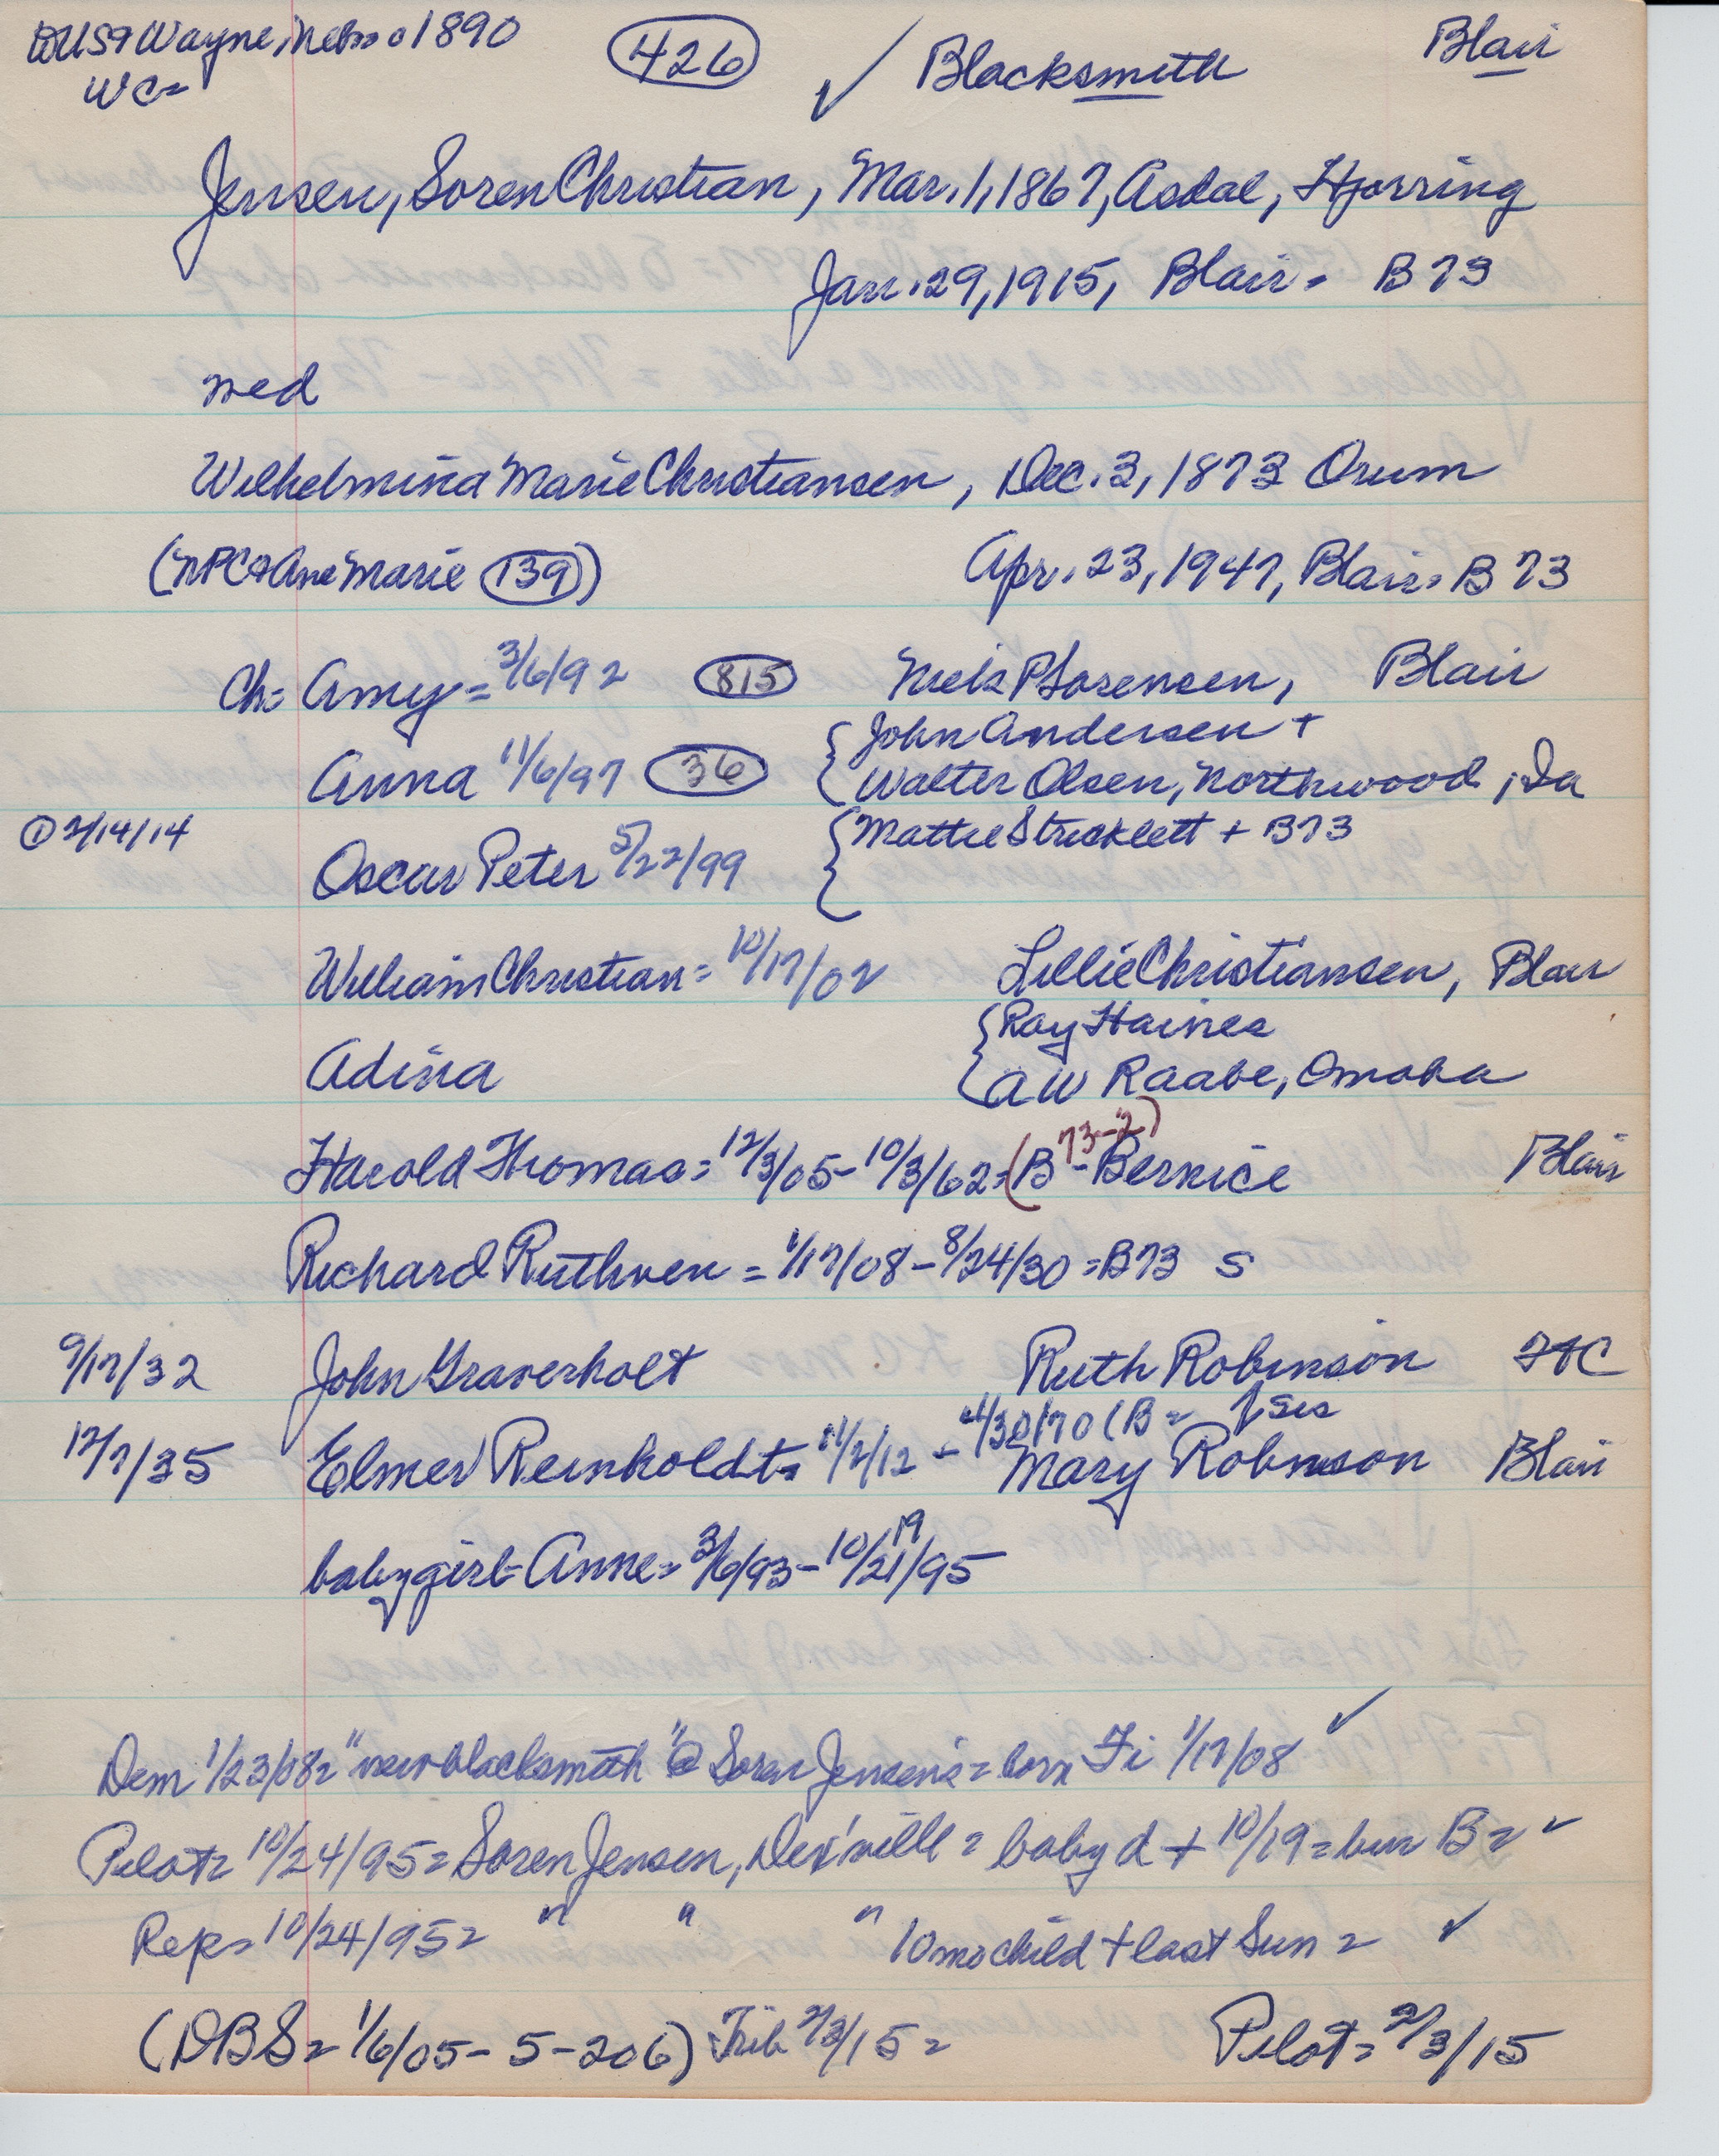 Wayne, Nebr 1890 426 ✓ Blacksmith Blair
WC=
Jensen, Soren Christian, Mar. 1, 1867, Asdal, Hjorring
Jan. 29, 1915, Blair = B73
med
Wilhelmina Marie Christiansen, Dec. 3, 1873 Orum
(NPC & Ane Marie 139) Apr. 23, 1947, Blair = B73
Ch = Amy = 3/6/92 815 Niels P Sorensen, Blair
Anna 11/6/97 36 { John Andersen +
Walter Olsen, Northwood, Ia
① 2/14/14 Oscar Peter 5/22/99 { Mattie Stricklett + B73
William Christian = 10/17/02 Lillie Christiansen, Blair
Adina { Roy Haines
A W Raabe, Omaha
Harold Thomas = 12/3/05 - 10/3/62 = (B 73-2) - Bernice Blair
Richard Ruthven = 1/17/08 - 8/24/30 = B73 S
9/17/32 John Graverholt Ruth Robinson FtC
↑ sis
12/7/35 Elmer Reinholdt = 11/2/12 - 4/30/70 (B = Mary Robinson Blair
baby girl = Anne = 3/6/93 - 10/21/95
19
Dem 1/23/08 = "new blacksmith" @ Soren Jensen's = born Fri 1/17/08 ✓
Pilot = 10/24/95 = Soren Jensen, Dex'ville = baby d + 10/19 = bur B = ✓
Rep = 10/24/95 = " " " 10 mo child + last Sun = ✓
(DBS = 1/6/05 - 5 - 206) Trib 2/3/15 = Pilot = 2/3/15